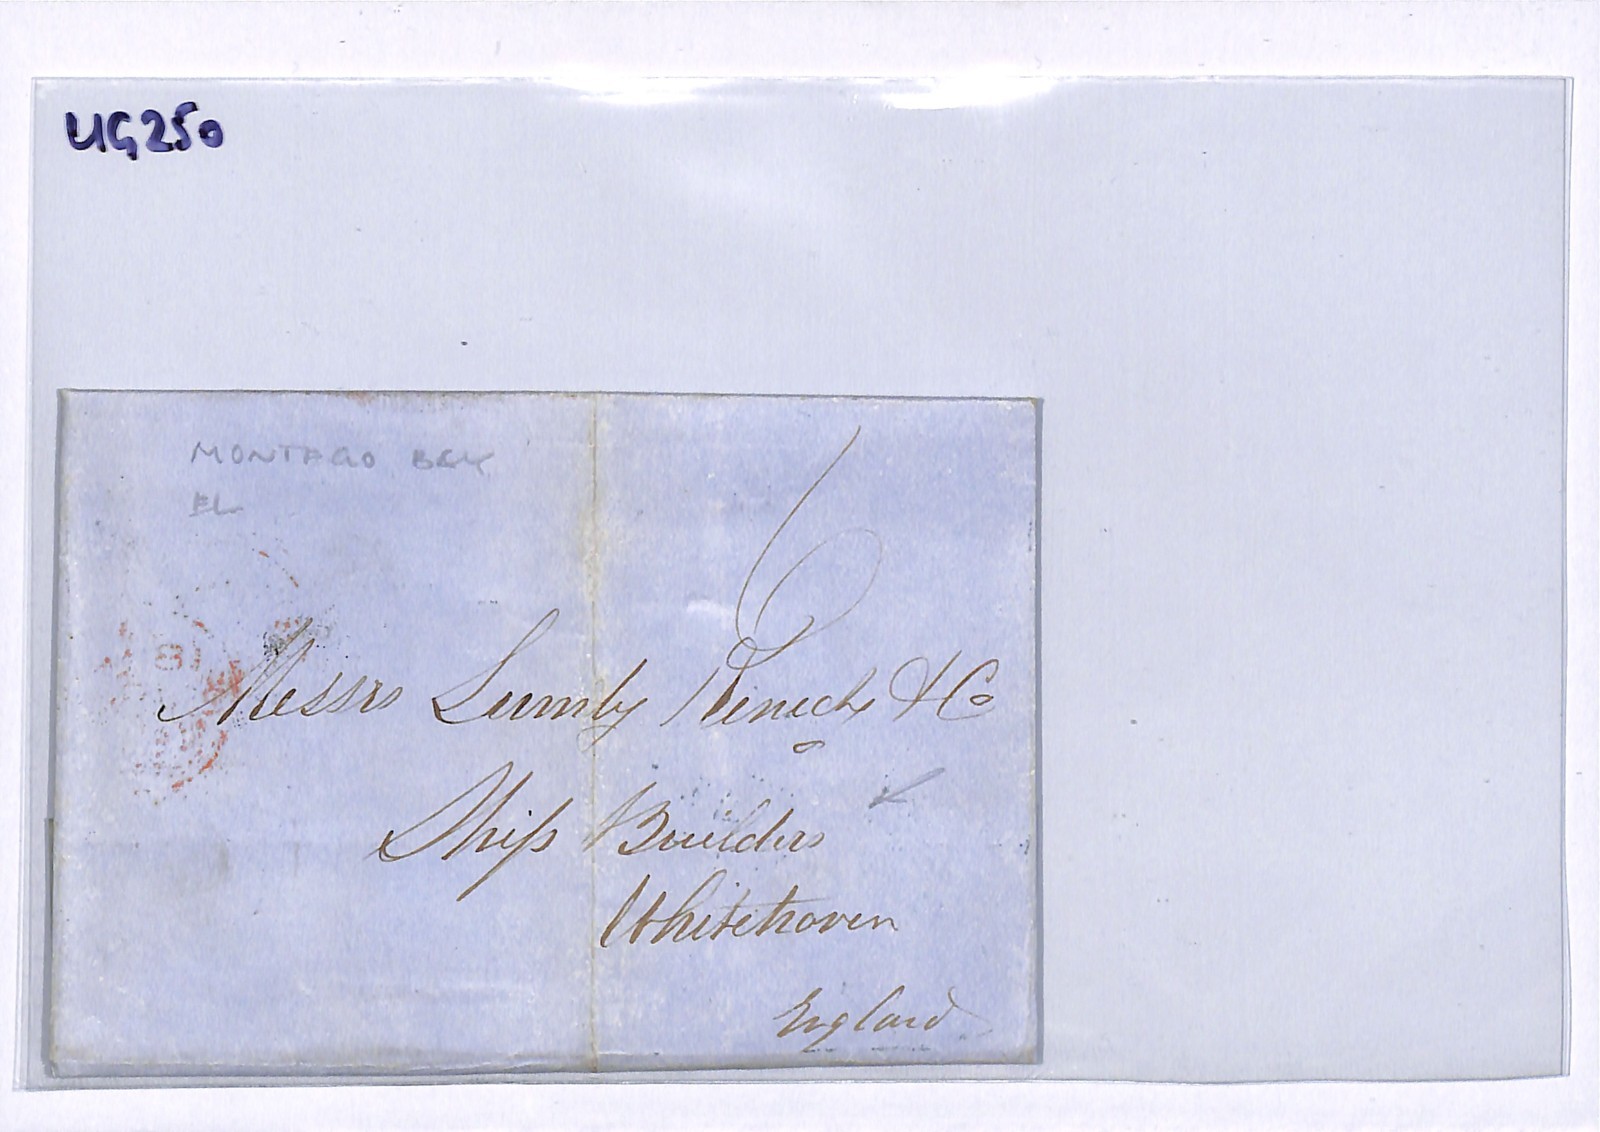 UG250
MONTEGO BAY
EL
6
Messrs Lumby & Co
Ship Builders
Whitehaven
England